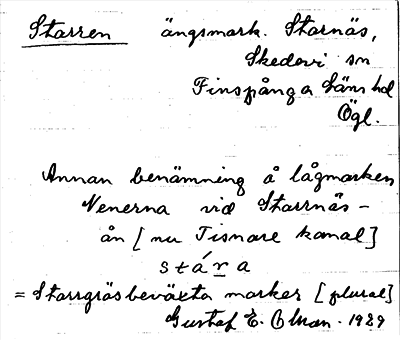 Starren ängsmark. Starnäs,
Skedevi sn
Finspånga Läns hd
Ögl.
Annan benämning å lågmarken
Venerna vid Starrnäs-
ån [nu Tisnare kanal]
stára
= Starrgräsbeväxta marker [plural]
Gustaf E. Olman. 1929